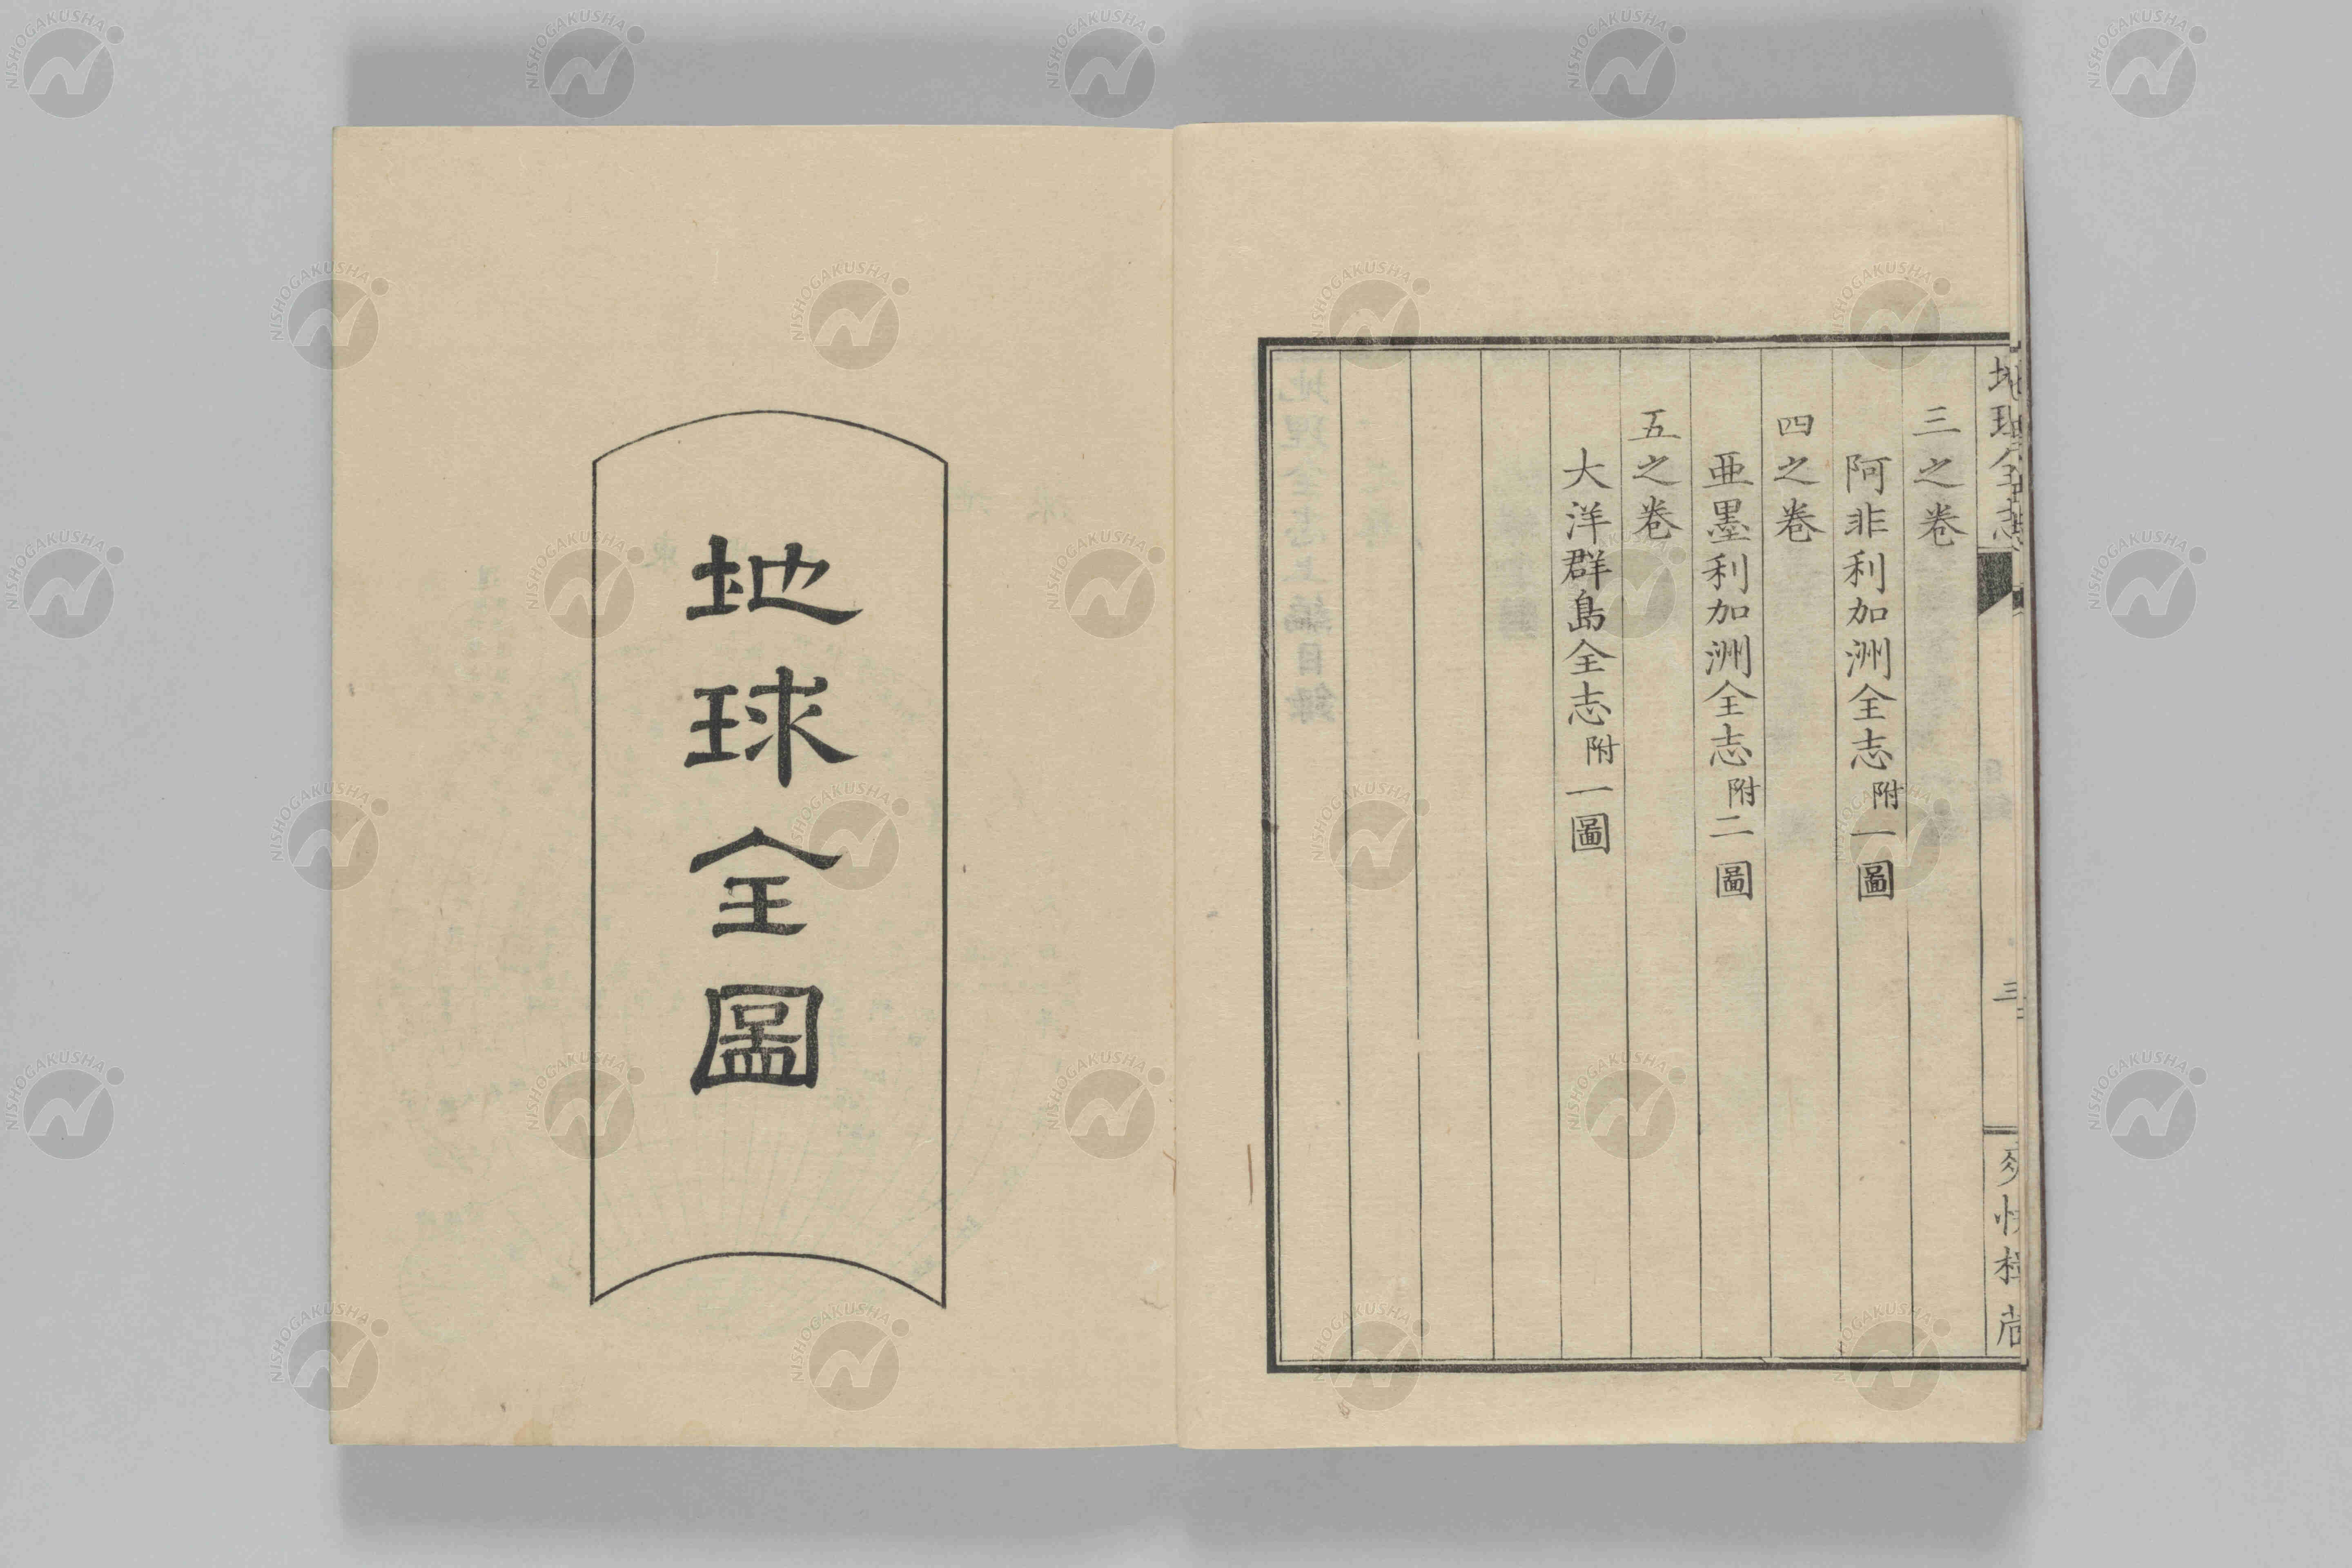 三之卷
阿非利加洲全志附一圖
四之卷
亜墨利加洲全志附二圖
五之卷
大洋群島全志附一圖
三
地球全圖
NISHOGAKUSHA